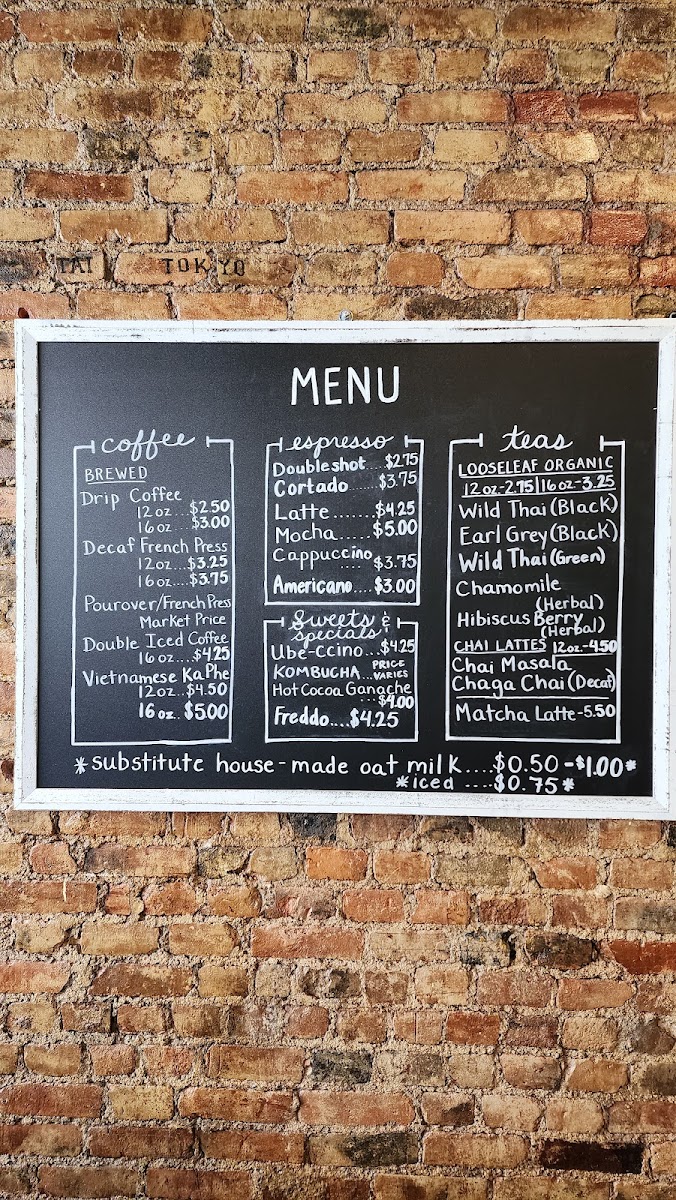 TAI TOKYO
MENU
coffee
BREWED
Drip Coffee
12 oz...$2.50
16 oz...$3.00
Decaf French Press
12 oz...$3.25
16 oz...$3.75
Pourover/French Press
Market Price
Double Iced Coffee
16 oz....$4.25
Vietnamese Ka Phe
12 oz...$4.50
16 oz..$5.00
espresso
Double shot....$2.75
Cortado.....$3.75
Latte.......$4.25
Mocha.....$5.00
Cappuccino
....$3.75
Americano....$3.00
Sweets &
specials
Ube-ccino...$4.25
KOMBUCHA...PRICE VARIES
Hot Cocoa Ganache
...$4.00
Freddo....$4.25
teas
LOOSELEAF ORGANIC
12 oz-2.75|16 oz-3.25
Wild Thai (Black)
Earl Grey (Black)
Wild Thai (Green)
Chamomile
(Herbal)
Hibiscus Berry
(Herbal)
CHAI LATTES 12 oz.-4.50
Chai Masala
Chaga Chai (Decaf)
Matcha Latte-5.50
*substitute house-made oat milk....$0.50-$1.00*
*iced....$0.75*